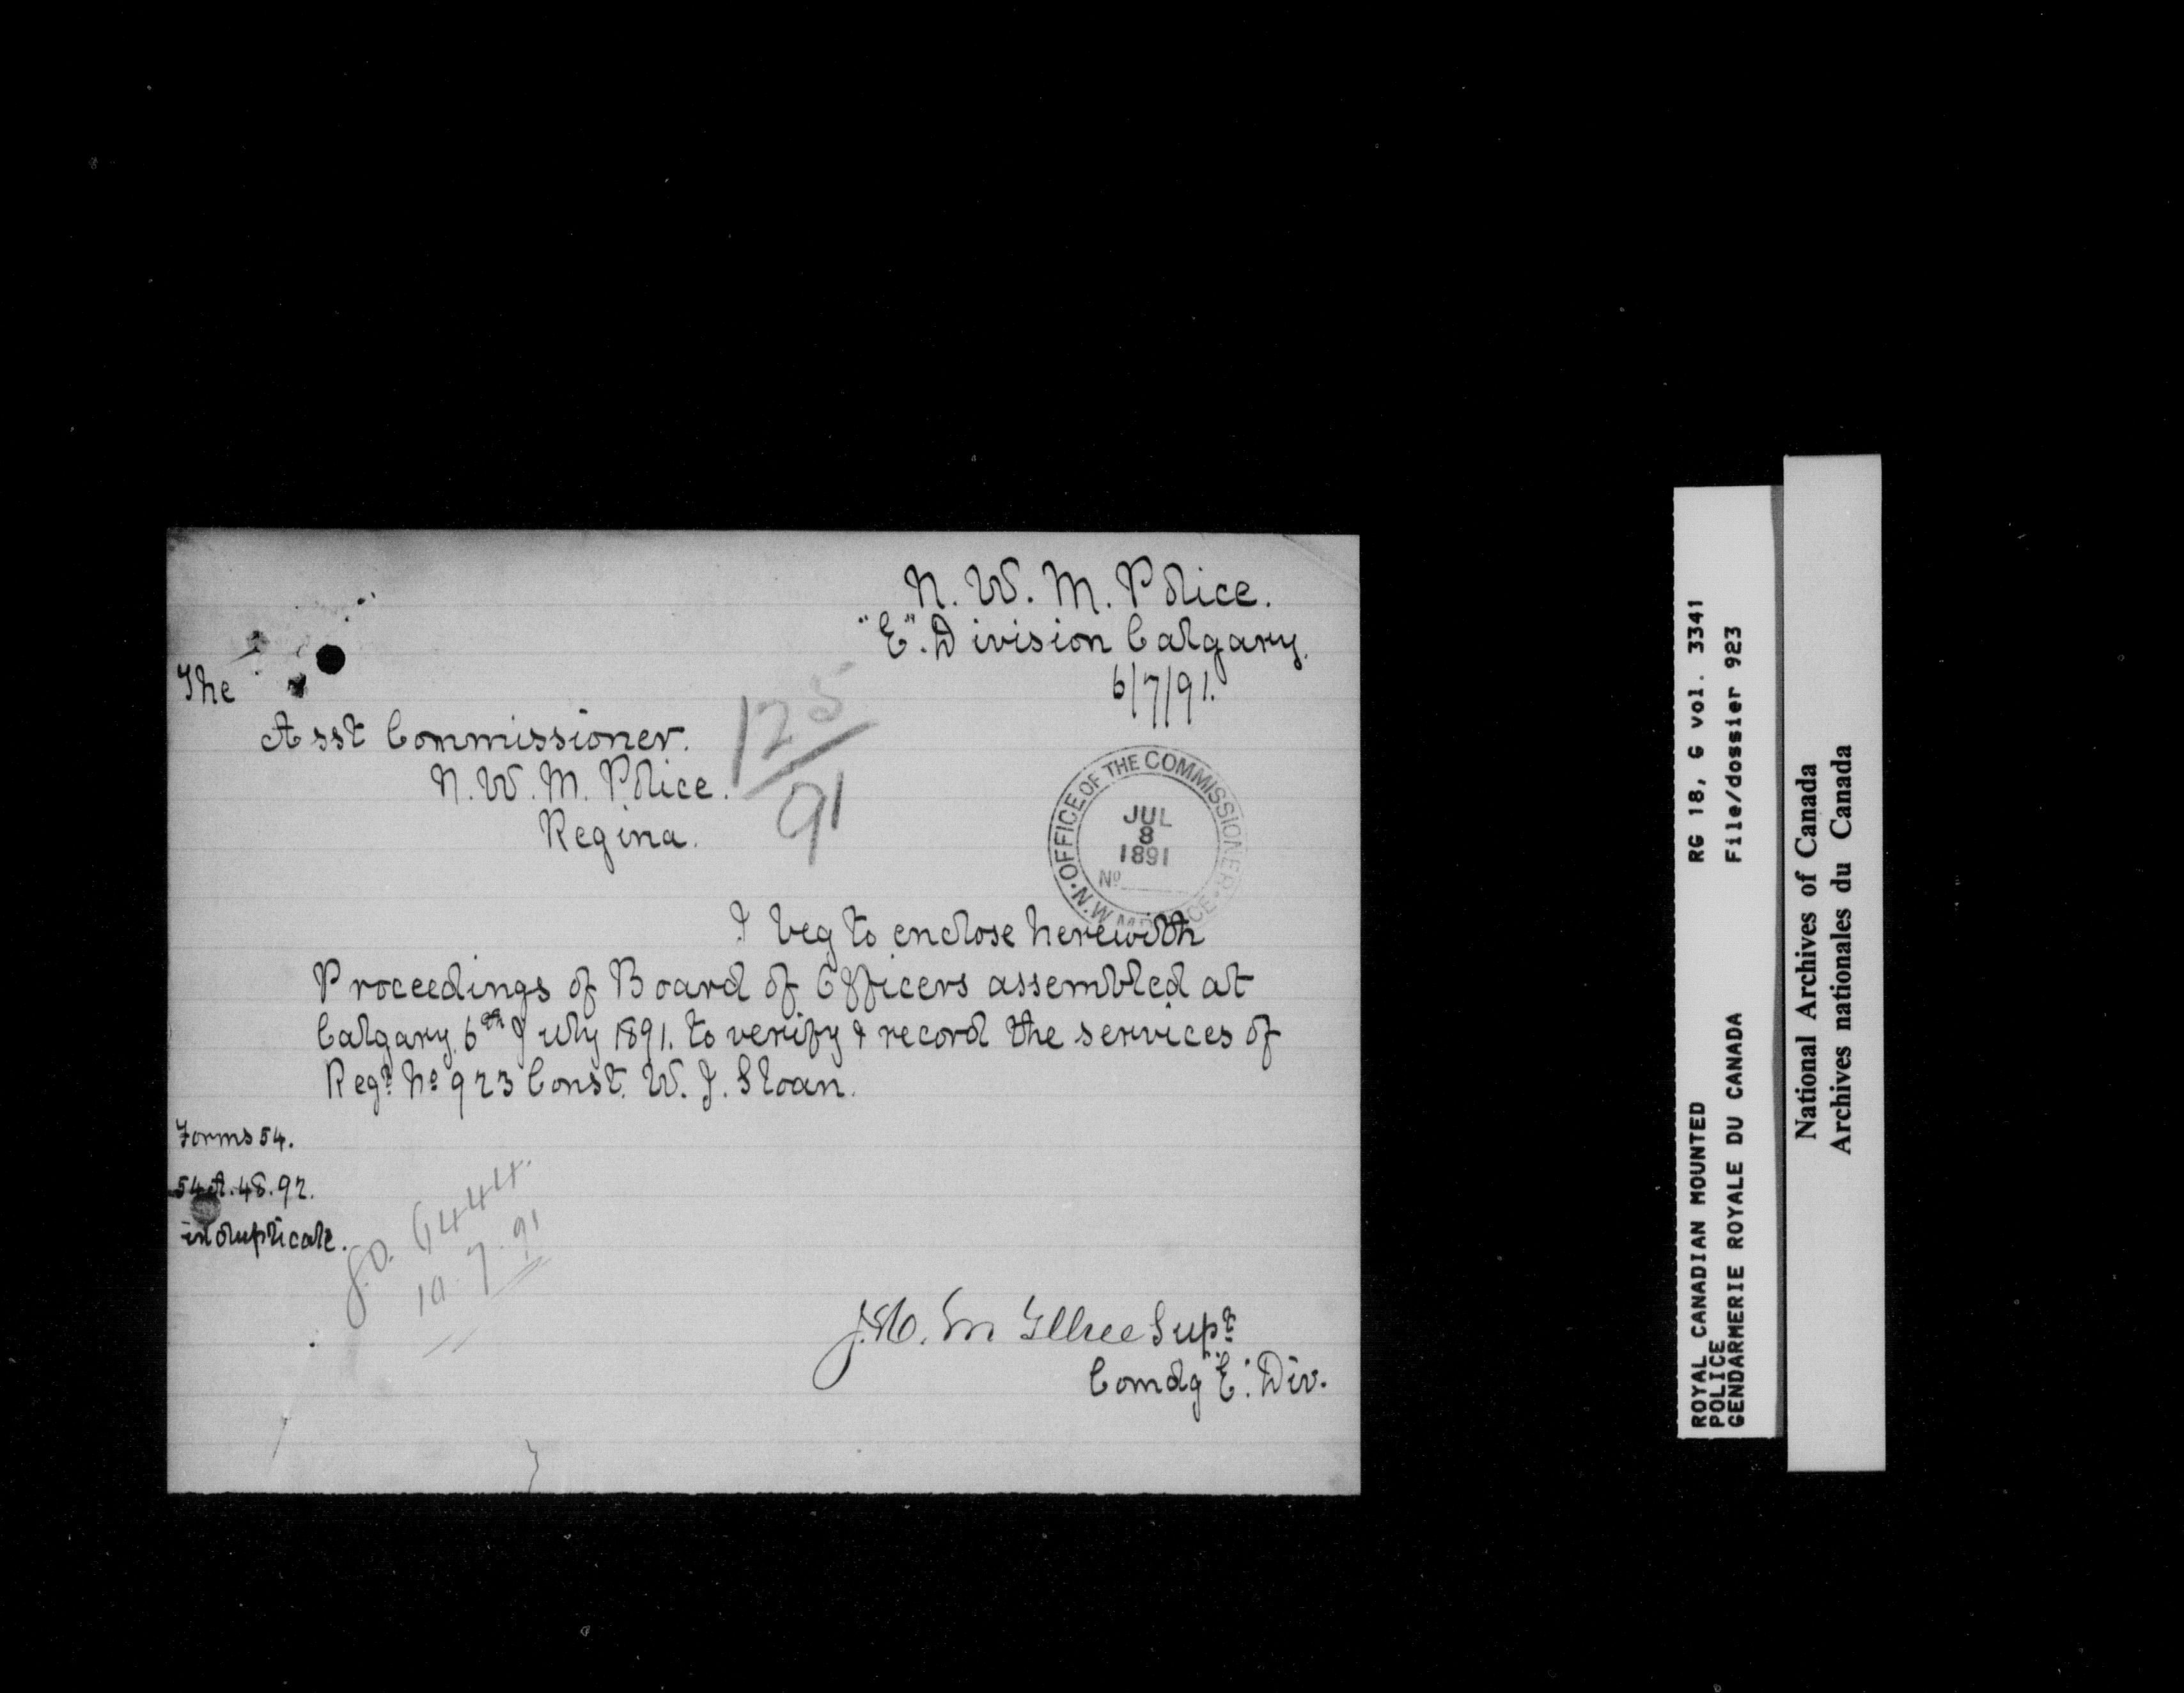 N. W. M. Police.
"E". Division Calgary.
6/7/91.
The
Asst Commissioner.
N. W. M. Police.
Regina.
125
91
OFFICE OF THE COMMISSIONER
N.W.M. POLICE
JUL
8
1891
No
I beg to enclose herewith
Proceedings of Board of Officers assembled at
Calgary 6th July 1891. to verify & record the services of
Regt. No 923 Const. W. J. Sloan.
Forms 54.
54A. 48. 92.
in duplicate.
G.O. 6444.
10. 7. 91
Supt
Comdg "E". Div.
ROYAL CANADIAN MOUNTED
POLICE
GENDARMERIE ROYALE DU CANADA
RG 18, G vol. 3341
File/dossier 923
National Archives of Canada
Archives nationales du Canada